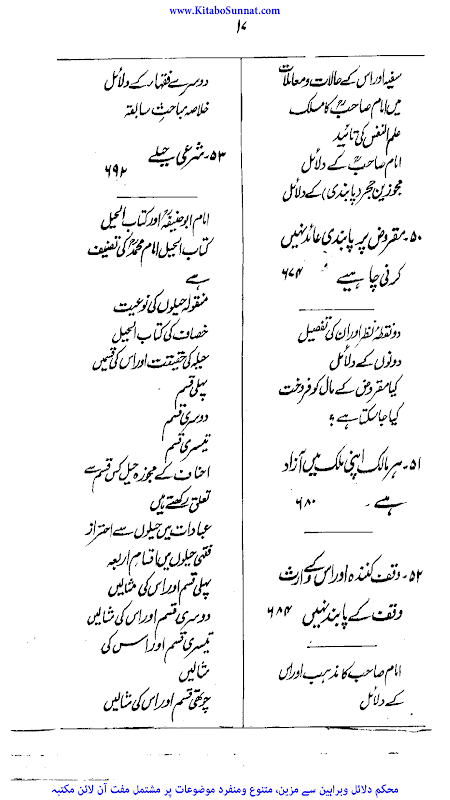 www.KitaboSunnat.com
۱۷
سفیہ اور اس کے حالات و معاملات
میں امام صاحبؒ کا مسلک
علم النفس کی تائید
امام صاحبؒ کے دلائل
مجوزین حجر (پابندی) کے دلائل
۵۰۔ مقروض پر پابندی عائد نہیں
کرنی چاہیے ۶۷۴
دو نقطۂ نظر اور ان کی تفصیل
دونوں کے دلائل
کیا مقروض کے مال کو فروخت
کیا جا سکتا ہے؟
۵۱۔ ہر مالک اپنی ملک میں آزاد
ہے۔ ۶۸۰
۵۲۔ وقف کنندہ اور اس کے وارث
وقف کے پابند نہیں ۶۸۴
امام صاحب کا مذہب اور اس
کے دلائل
دوسرے فقہاء کے دلائل
خلاصہ مباحث سابقہ
۵۳۔ شرعی حیلے
۶۹۲
امام ابو حنیفہؒ اور کتاب الحیل
کتاب الحیل امام محمدؒ کی تصنیف
ہے
منقولہ حیلوں کی نوعیت
خصاف کی کتاب الحیل
حیلہ کی حقیقت اور اس کی قسمیں
پہلی قسم
دوسری قسم
تیسری قسم
احناف کے مجوزہ حیل کس قسم سے
تعلق رکھتے ہیں
عبادات میں حیلوں سے احتراز
فقہی حیلوں میں اقسام اربعہ
پہلی قسم اور اس کی مثالیں
دوسری قسم اور اس کی مثالیں
تیسری قسم اور اس کی
مثالیں
چوتھی قسم اور اس کی مثالیں
محکم دلائل وبراہین سے مزین، متنوع ومنفرد موضوعات پر مشتمل مفت آن لائن مکتبہ